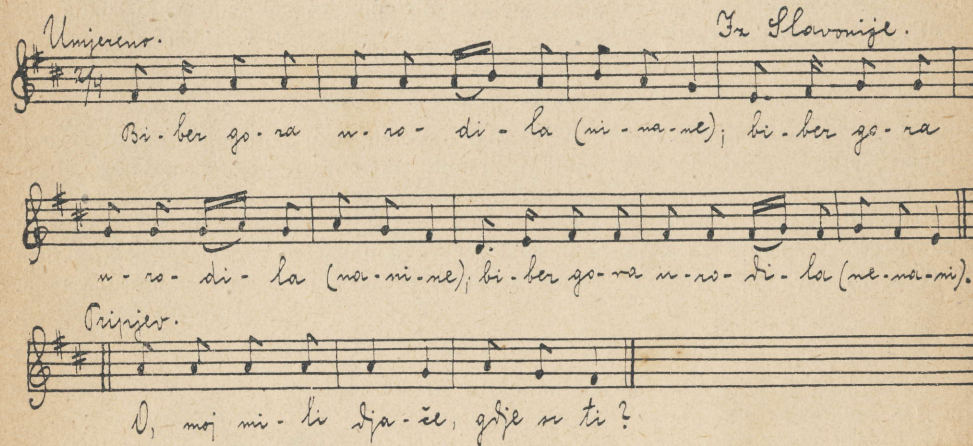 Umjereno. Iz Slavonije.
2/4
Bi-ber go-ra u-ro-di-la (ni-na-ne); bi-ber go-ra
u-ro-di-la (na-ni-ne); bi-ber go-ra u-ro-di-la (ne-na-ni).
Pripjev.
O, moj mi-li dja-če, gdje si ti?